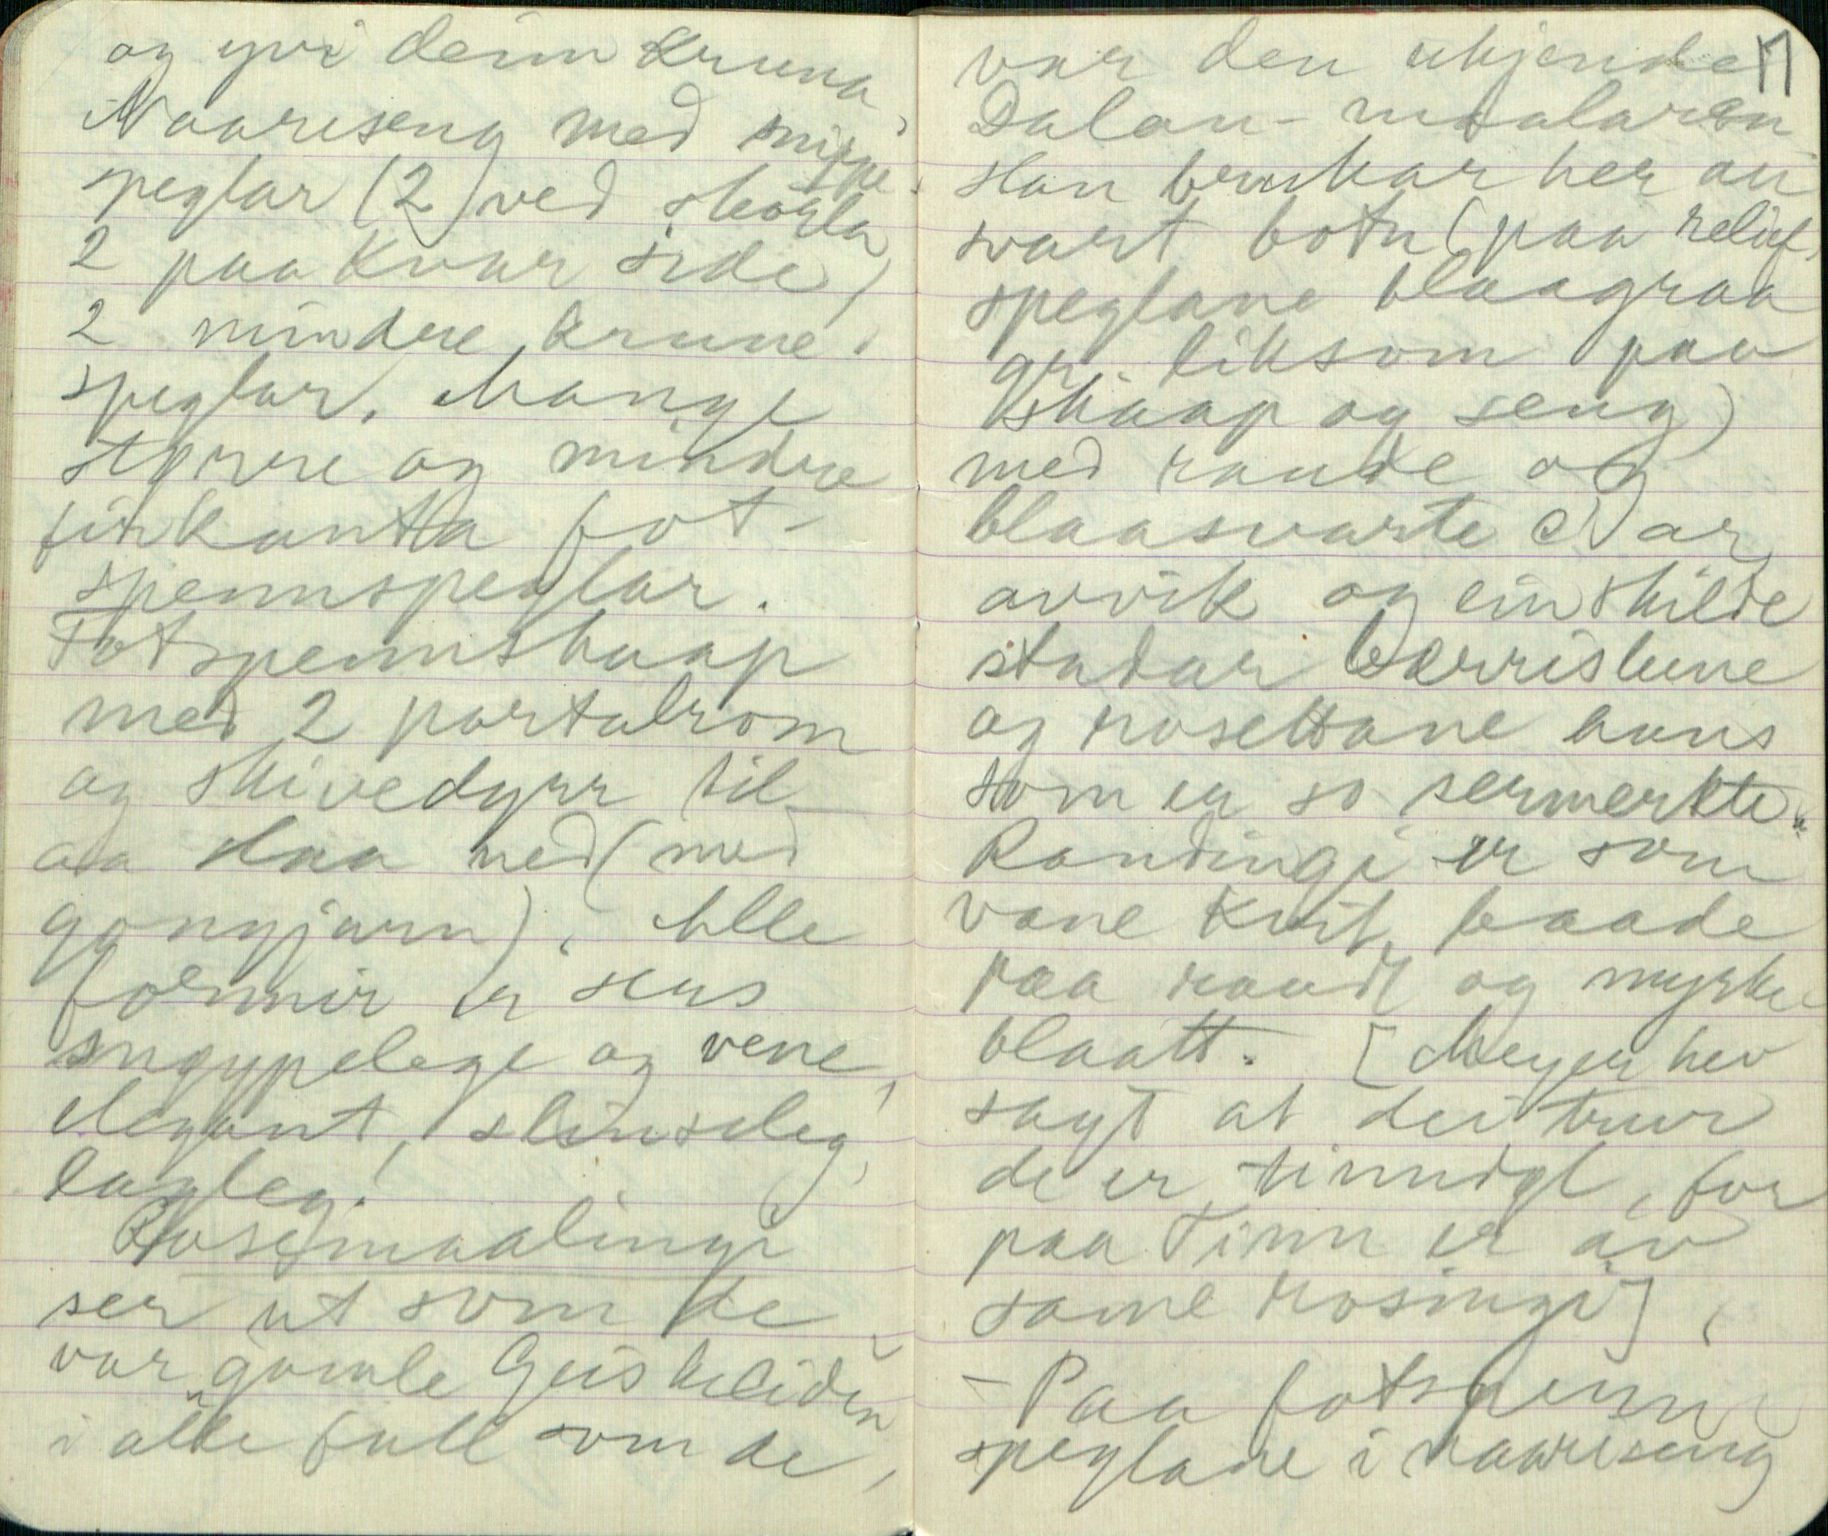 og yvi deim Kruna
Naareseng med snippe-
speglar (2) ved skorla
2 paa kvar side,
2 mindre krune-
speglar. Mange
styrre og mindre
firkanta fot-
spennspeglar.
Fotspennskaap
med 2 portalrom
og skivedyrr til
aa slaa ned (med
gongjarn). Alle
former er her
sugypelege og vene,
elegant,
lagleg!
Rosemaalingi
ser ut som de
var gamle Geiskeliden
i alle fall som de
17
var den ukjende
Dalan-maalaren
Han brukar her au
svart botn (paa relief-
speglane blaagraa
gr. liksom paa
skaap og seng)
med raude og
blaasvarte
avvik og einskilde
stadar
og rosettane hans
som er so sermerkte.
Randingi er som
vane kvit, baade
paa raudt og myrke
blaatt. [Meyer hev
sagt at dei trur
de er tinndøl, for
paa Tinn er av
same rosingi],
- Paa fotspenn
speglane i naareseng